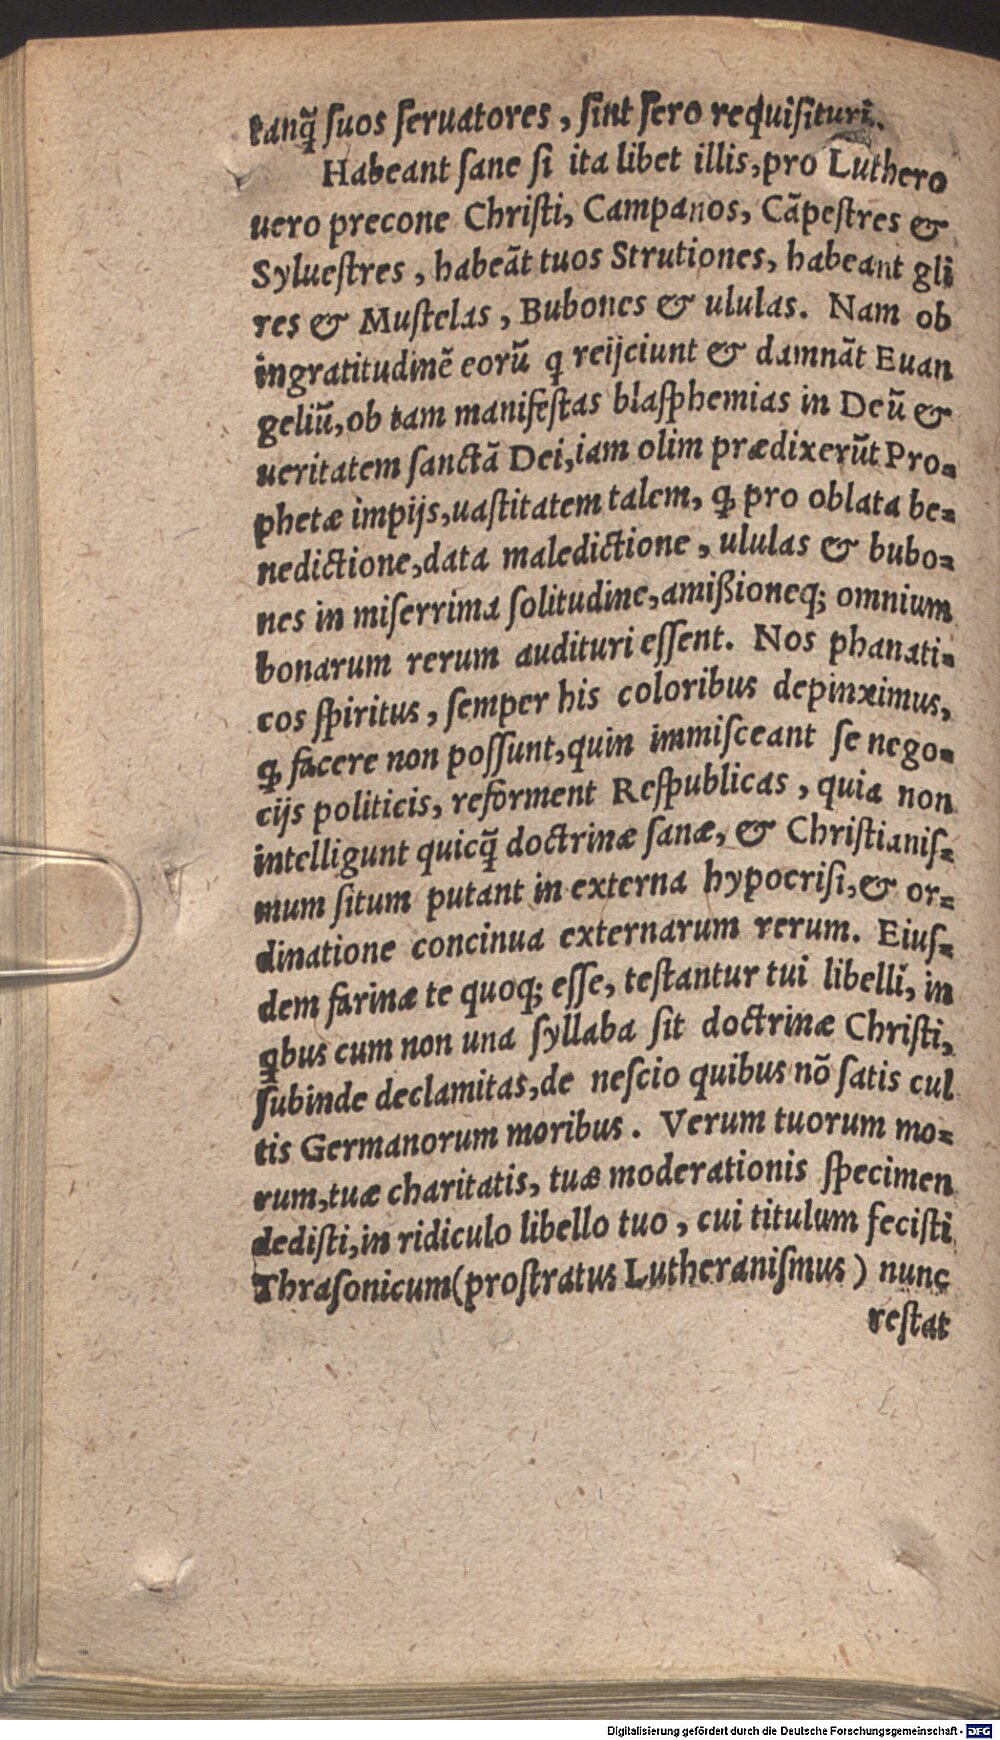 tanq̃ ſuos ſeruatores, ſint ſero requiſituri.
Habeant ſane ſi ita libet illis, pro Luthero
uero precone Chriſti, Campanos, Cãpeſtres &
Sylueſtres, habeãt tuos Strutiones, habeant gli
res & Muſtelas, Bubones & ululas. Nam ob
ingratitudinẽ eorũ q reijciunt & damnãt Euan
geliũ, ob tam manifeſtas blaſphemias in Deũ &
ueritatem ſanctã Dei, iam olim prædixerũt Pro-
phetæ impijs, uaſtitatem talem, ꝙ pro oblata be-
nedictione, data maledictione, ululas & bubo-
nes in miſerrima ſolitudine, amißioneq; omnium
bonarum rerum audituri eſſent. Nos phanati-
cos ſpiritus, ſemper his coloribus depinximus,
ꝙ facere non poſſunt, quin immiſceant ſe nego-
cijs politicis, reforment Reſpublicas, quia non
intelligunt quicq̃ doctrinæ ſanæ, & Chriſtianiſ-
mum ſitum putant in externa hypocriſi, & or-
dinatione concinua externarum rerum. Eiuſ-
dem farinæ te quoq; eſſe, teſtantur tui libelli, in
ꝗbus cum non una ſyllaba ſit doctrinæ Chriſti,
ſubinde declamitas, de neſcio quibus nõ ſatis cul
tis Germanorum moribus. Verum tuorum mo-
rum, tuæ charitatis, tuæ moderationis ſpecimen
dediſti, in ridiculo libello tuo, cui titulum feciſti
Thraſonicum (proſtratus Lutheraniſmus) nunc
reſtat
Digitalisierung gefördert durch die Deutsche Forschungsgemeinschaft - DFG